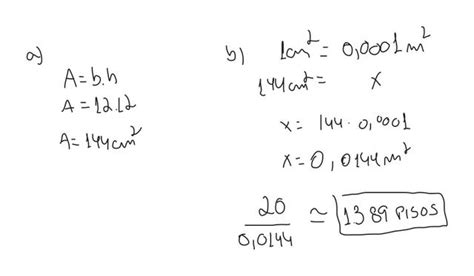 a)
A = b.h
A = 12.12
A = 144cm²
b) 1cm² = 0,0001m²
144cm² = x
x = 144.0,0001
x = 0,0144m²
20/0,0144 ≃ 1389 PISOS